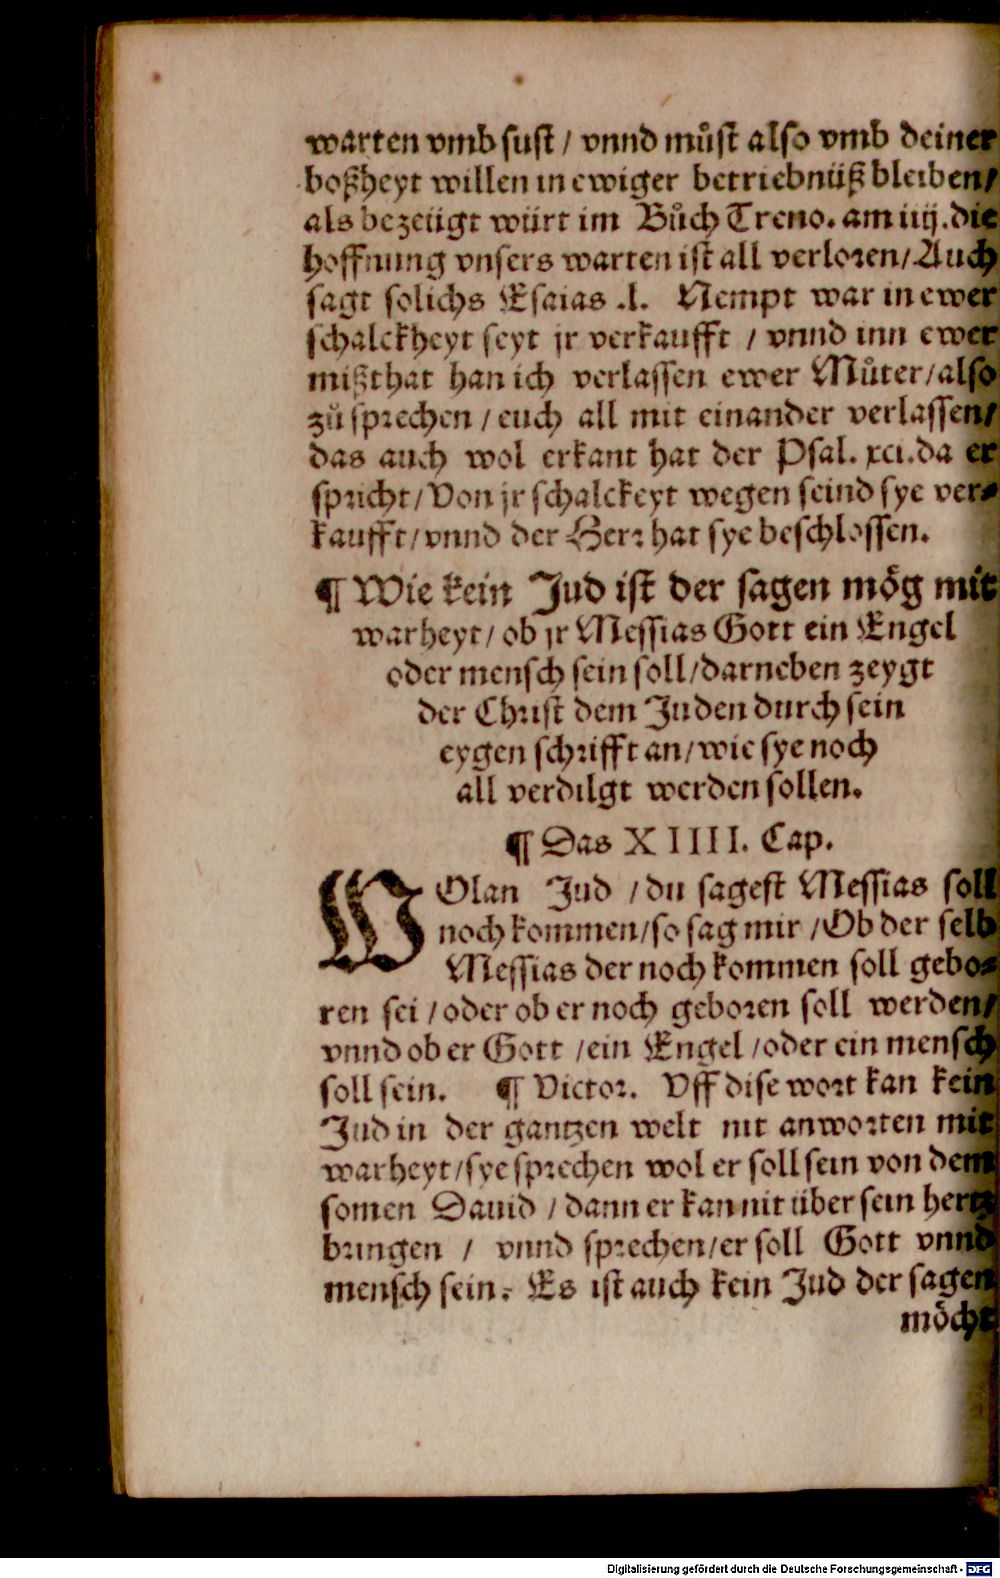 warten vmb sust / vnnd můst also vmb deiner
boßheyt willen in ewiger betriebnüß bleiben/
als bezeügt würt im Bůch Treno. am iiij. die
hoffnung vnsers warten ist all verloren/ Auch
sagt solichs Esaias .l. Nempt war in ewer
schalckheyt seyt jr verkaufft / vnnd inn ewer
mißthat han ich verlassen ewer Můter/also
zů sprechen / euch all mit einander verlassen/
das auch wol erkant hat der Psal. xci. da er
spricht/ Von jr schalckeyt wegen seind sye ver⸗
kaufft/ vnnd der Herr hat sye beschlossen.
¶ Wie kein Jud ist der sagen mög mit
warheyt/ ob jr Messias Gott ein Engel
oder mensch sein soll/darneben zeygt
der Christ dem Juden durch sein
eygen schrifft an/wie sye noch
all verdilgt werden sollen.
¶ Das XIIII. Cap.
WOlan Jud / du sagest Messias soll
noch kommen/so sag mir /Ob der selb
Messias der noch kommen soll gebo⸗
ren sei / oder ob er noch geboren soll werden/
vnnd ob er Gott /ein Engel /oder ein mensch
soll sein. ¶ Victor. Vff dise wort kan kein
Jud in der gantzen welt nit anworten mit
warheyt/sye sprechen wol er soll sein von dem
somen Dauid / dann er kan nit über sein hertz
bringen / vnnd sprechen/er soll Gott vnnd
mensch sein. Es ist auch kein Jud der sagen
möcht
Digitalisierung gefördert durch die Deutsche Forschungsgemeinschaft - DFG